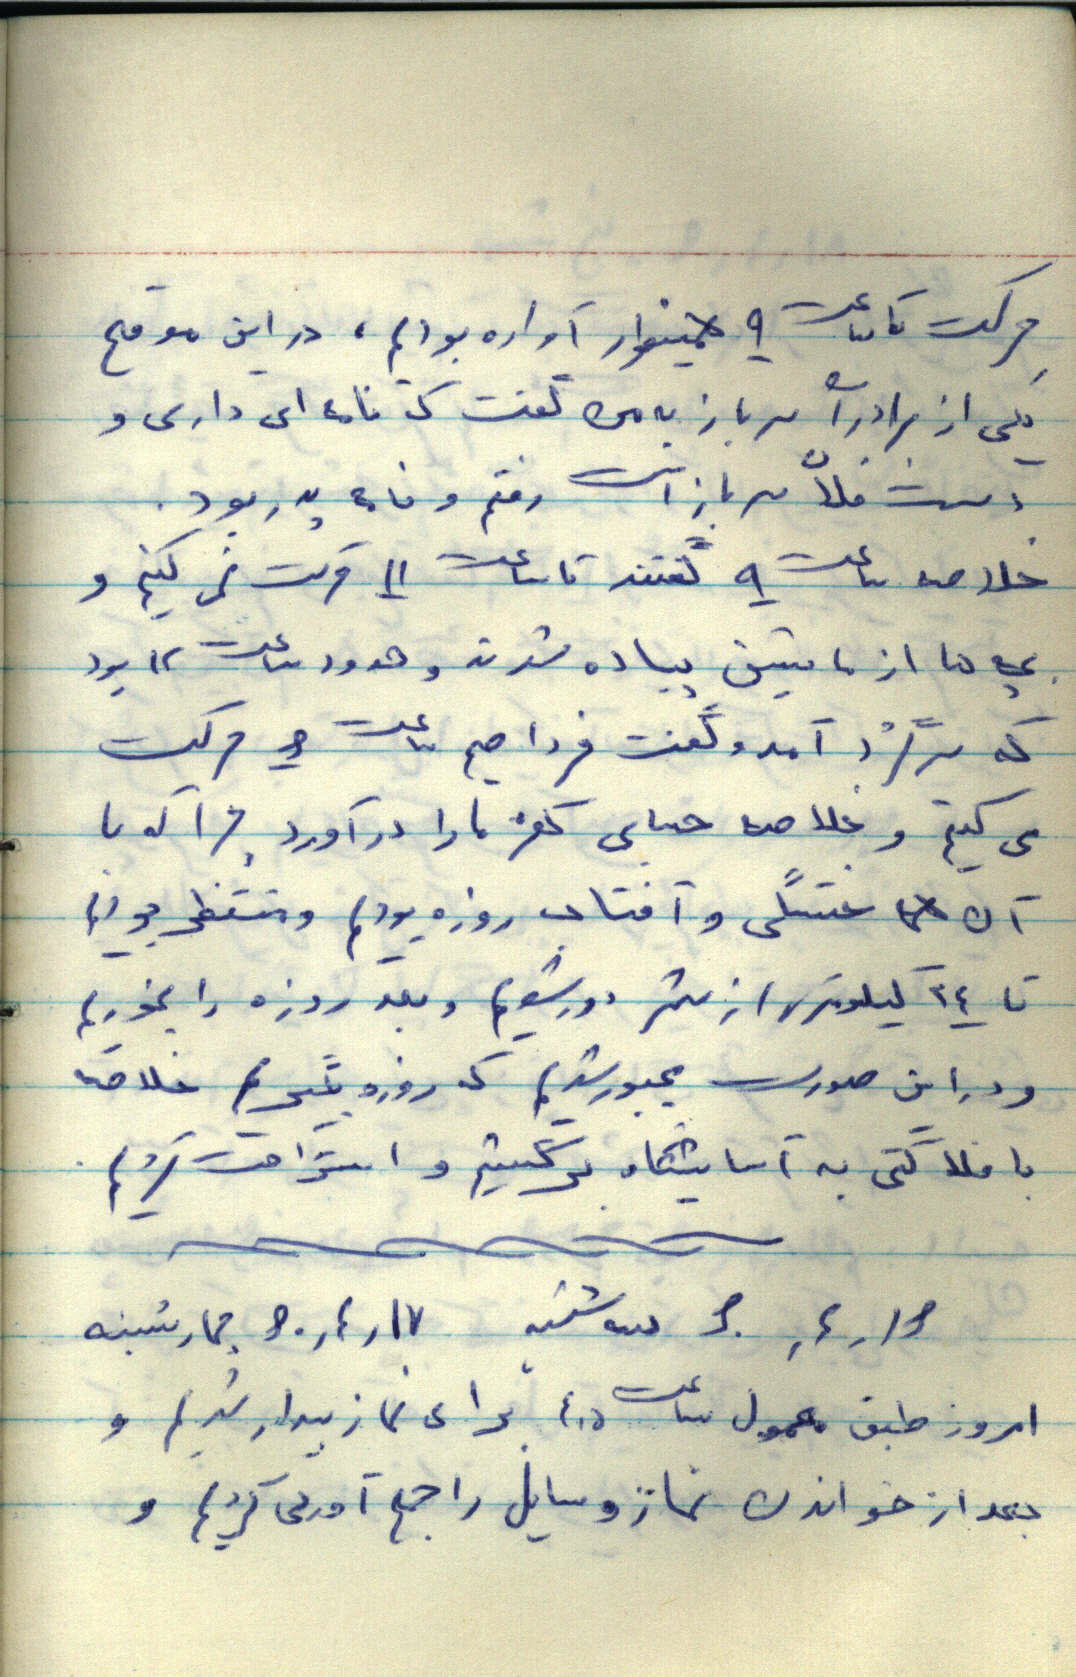 حرکت تا ساعت ۹ همینطور آواره بودیم ، در این موقع
یکی از برادران سرباز به من گفت که نامه ای داری و
دست فلان سرباز است رفتم و نامه پدر بود .
خلاصه ساعت ۹ گفتند تا ساعت ۱۱ حرکت نمی کنیم و
بچه ها از ماشین پیاده شدند و حدود ساعت ۱۲ بود
که سرگرد آمد و گفت فردا صبح ساعت ۶ حرکت
می کنیم و خلاصه حسابی کفر ما را در آورد چرا که با
آن خستگی و آفتاب روزه بودیم و منتظر بودیم
تا ۲۴ کیلومتر از شهر دور شویم و بعد روزه را بخوریم
و در این صورت مجبور شدیم که روزه بگیریم خلاصه
با فلاکتی به آسایشگاه برگشتیم و استراحت کردیم .
۱۶ر۴ر۶۰ سه شنبه ۱۷ر۴ر۶۰ چهارشنبه
امروز طبق معمول ساعت ۴٫۵ برای نماز بیدار شدیم و
بعد از خواندن نماز وسایل را جمع آوری کردیم و